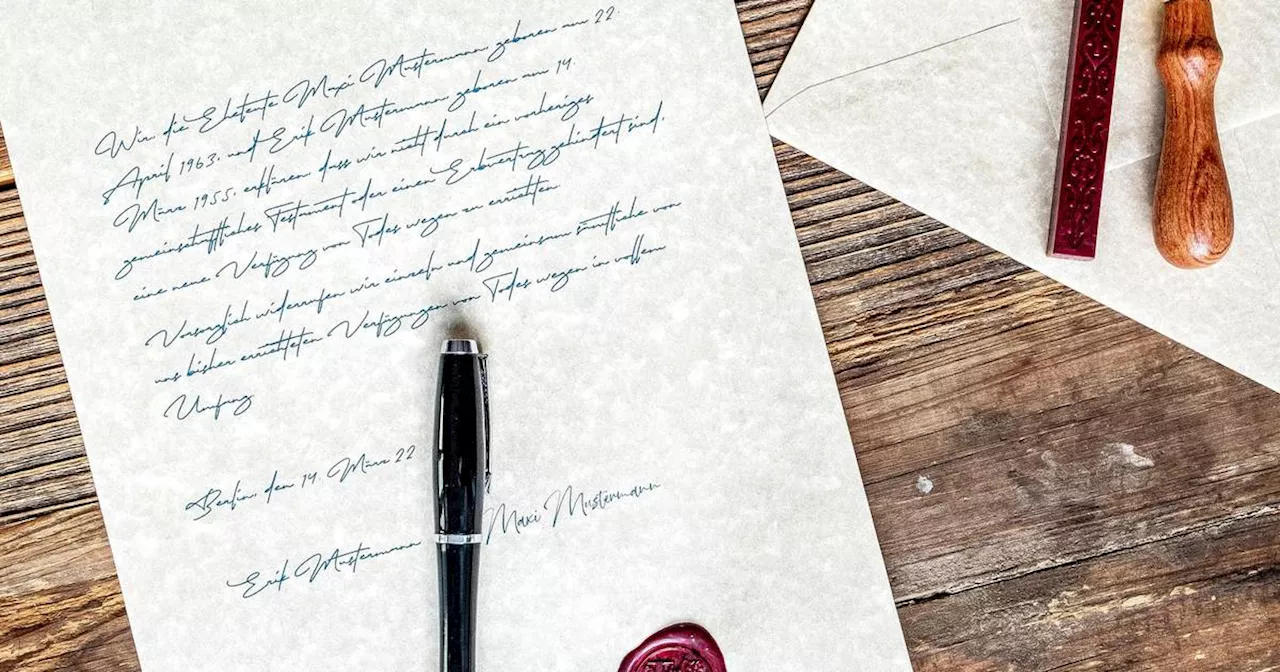 Wir, die Eheleute Maxi Mustermann, geboren am 22.
April 1963, und Erik Mustermann, geboren am 14.
März 1955, erklären, dass wir nicht durch ein vorheriges
gemeinschaftliches Testament oder einen Erbvertrag gehindert sind,
eine neue Verfügung von Todes wegen zu errichten.
Vorsorglich widerrufen wir einzeln und gemeinsam sämtliche von
uns bisher errichteten Verfügungen von Todes wegen in vollem
Umfang
Berlin, den 14. März 22
Erik Mustermann Maxi Mustermann